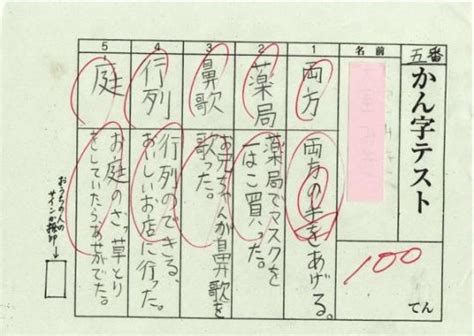 五番
かん字テスト
名前
100
てん
1
両方
両方の手をあげる。
2
薬局
薬局でマスクを
一はこ買った。
3
鼻歌
お兄ちゃんが鼻歌を
歌った。
4
行列
行列のできる、
おいしいお店に行った。
5
庭
お庭のざっ草とり
をしていたらあせがでた。
おうちの人の
サインか押印